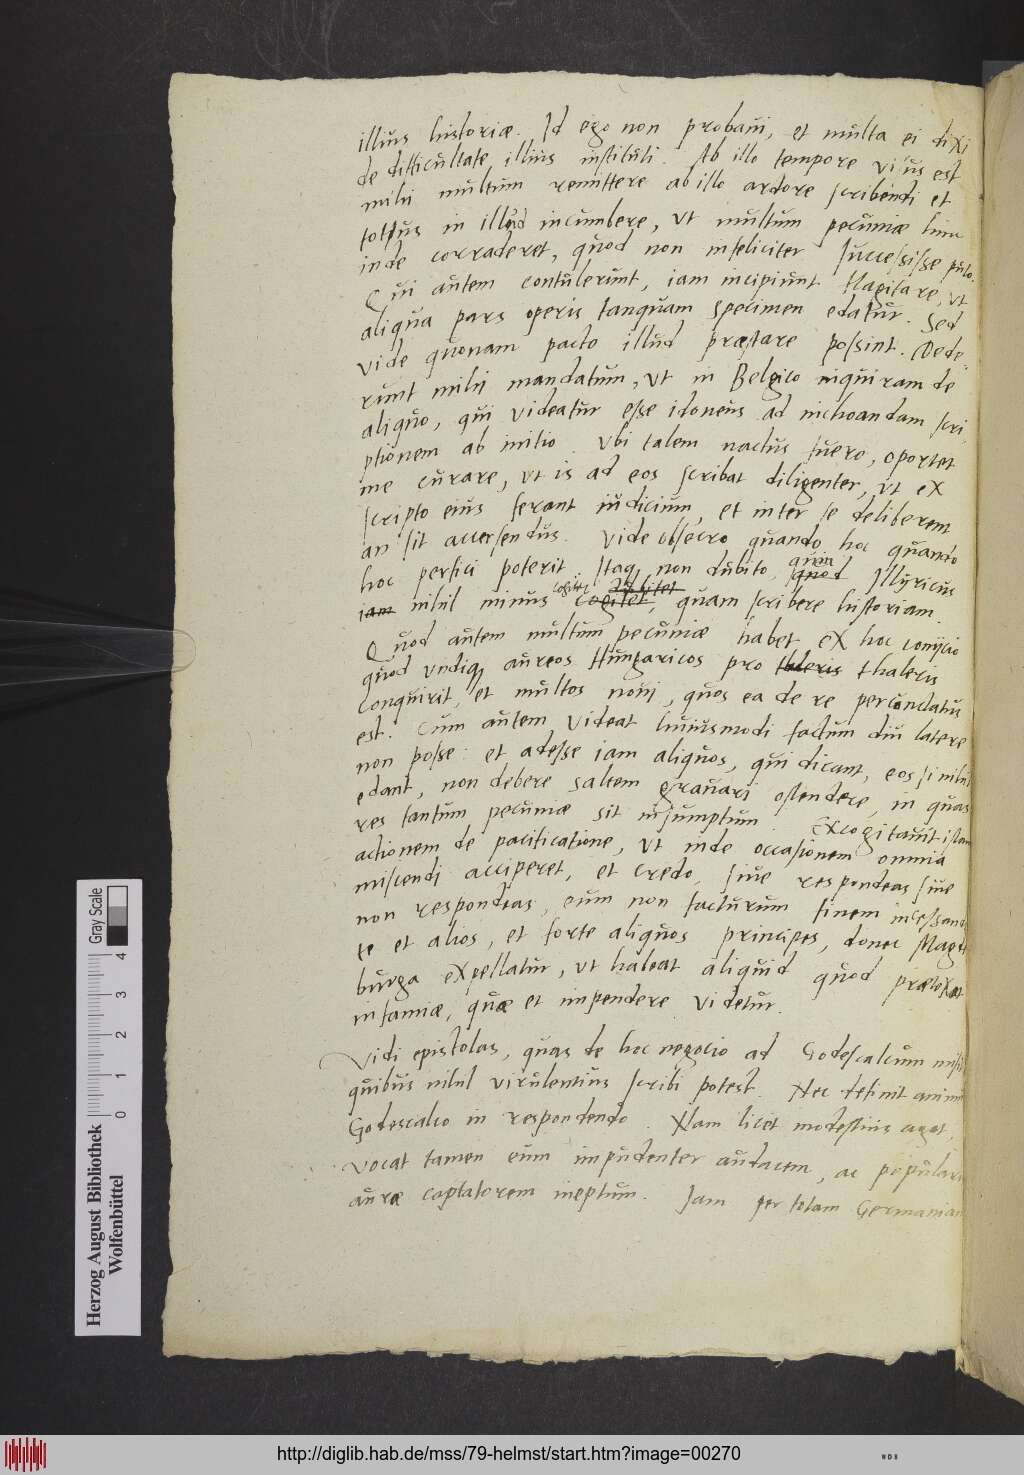 illius historiæ. Id ego non probaui, et multa ei dixi
de difficultate illius instituti. Ab illo tempore visus est
mihi multum remittere ab illo ardore scribendi et
totus in illud incumbere, vt multum pecuniæ hinc
inde corraderet, quod non infeliciter successisse puto.
Qui autem contulerunt, iam incipiunt flagitare, vt
aliqua pars operis tanquam specimen edatur. Sed
vide quonam pacto illud præstare possint. Dede
runt mihi mandatum, vt in Belgico inquiram de
aliquo, qui videatur esse idoneus ad inchoandam scri
ptionem ab initio. Vbi talem nactus fuero, oportet
me curare, vt is ad eos scribat diligenter, vt ex
scripto eius ferant iudicium, et inter se deliberent
an sit accersendus. Vide obsecro quando hoc quando
hoc perfici poterit. Itaq non dubito, quin quod Illyricus
iam nihil minus cogitet dubitet cogitet, quam scribere historiam.
Quod autem multum pecuniæ habet ex hoc coniicio
quod vndiq aureos Hungaricos pro thaleris
conquirit, et multos noui, quos ea de re percunctatus
est. Cum autem videat huiusmodi factum diu latere
non posse: et adesse iam aliquos, qui dicant, eos si nihil
edant, non debere saltem grauari ostendere, in quas
res tantum pecuniæ sit insumptum. Excogitauit istam
actionem de pacificatione, vt inde occasionem omnia
miscendi acciperet, et credo, siue respondeas siue
non respondeas, eum non facturum finem incessandi
te et alios, et forte aliquos principes, donec Magde
burga expellatur, vt habeat aliquid quod prætexat
infamiæ, quæ et impendere videtur.
Vidi epistolas, quas de hoc negocio ad Godescalcum misit
quibus nihil virulentius scribi potest. Nec defuit animus
Godescalco in respondendo. Nam licet modestius agat,
vocat tamen eum impudenter audacem, ac popularis
auræ captatorem ineptum. Iam per totam Germaniam
Herzog August Bibliothek
Wolfenbüttel
Gray Scale
0 1 2 3 4
http://diglib.hab.de/mss/79-helmst/start.htm?image=00270